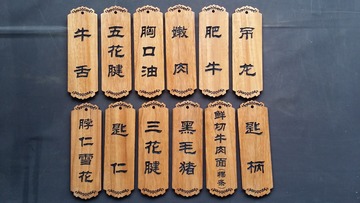 牛舌
五花腱
胸口油
嫩肉
肥牛
吊龙
脖仁雪花
匙仁
三花腱
黑毛猪
鲜切牛肉面
匙柄